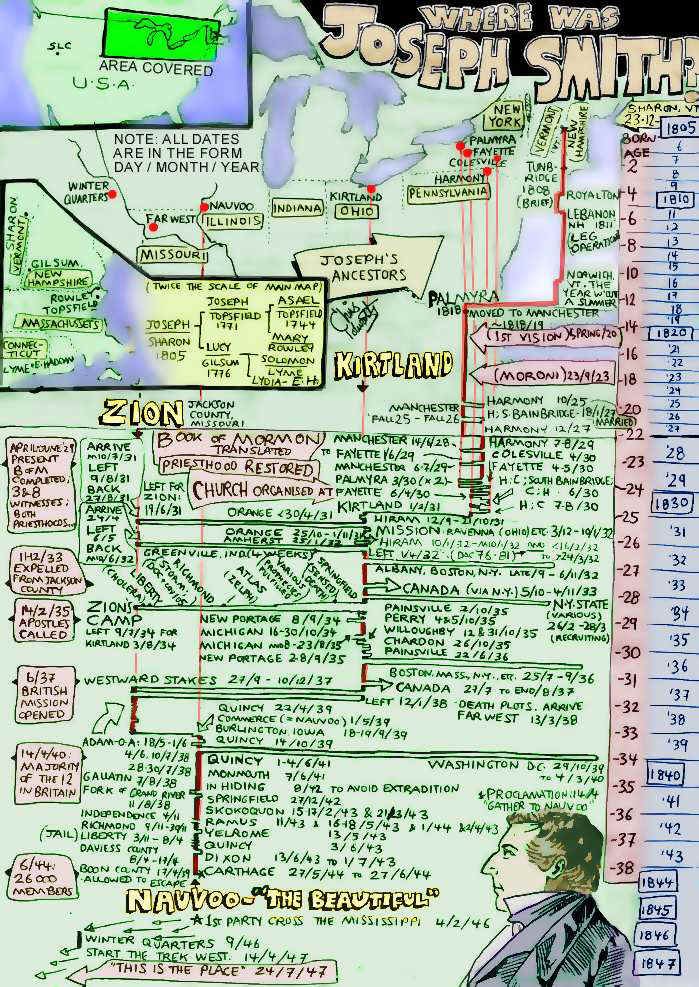 WHERE WAS
JOSEPH SMITH?
SLC
U.S.A.
AREA COVERED
NOTE: ALL DATES
ARE IN THE FORM
DAY / MONTH / YEAR
WINTER
QUARTERS
FAR WEST
NAUVOO
ILLINOIS
MISSOURI
INDIANA
KIRTLAND
OHIO
NEW
YORK
PALMYRA
FAYETTE
COLESVILLE
HARMONY
PENNSYLVANIA
VERMONT
NEW
HAMPSHIRE
SHARON, VT
23-12-
1805
BORN
AGE
TUNB-
RIDGE
1808
(BRIEF)
ROYALTON
LEBANON
NH 1811
(LEG
OPERATION)
NORWICH,
VT. THE
YEAR W'OUT
A SUMMER
2
4
6
8
10
12
14
16
18
20
MARRIED
22
23
24
25
26
27
28
29
30
31
32
33
34
35
36
37
38
6
7
8
9
1810
11
12
13
14
15
16
17
18
19
1820
'21
22
23
24
25
26
27
'28
'29
1830
'31
'32
'33
'34
'35
'36
'37
'38
'39
1840
'41
'42
'43
1844
1845
1846
1847
SHARON
VERMONT
GILSUM
NEW
HAMPSHIRE
ROWLEY
TOPSFIELD
MASSACHUSETTS
CONNEC-
TICUT
LYME
E. HADDAM
JOSEPH'S
ANCESTORS
(TWICE THE SCALE OF MAIN MAP)
JOSEPH
SHARON
1805
JOSEPH
TOPSFIELD
1771
LUCY
GILSUM
1776
ASAEL
TOPSFIELD
1744
MARY
ROWLEY
SOLOMON
LYME
LYDIA-E.H.
PALMYRA
1818
MOVED TO MANCHESTER
~1818/19
(1ST VISION) SPRING/20
(MORONI) 23/9/23
KIRTLAND
ZION
JACKSON
COUNTY,
MISSOURI
MANCHESTER
FALL 25 - FALL 26
HARMONY 10/25
H; S. BAINBRIDGE-18/1/27
HARMONY 12/27
BOOK OF MORMON
TRANSLATED
PRIESTHOOD RESTORED
CHURCH ORGANISED AT
MANCHESTER 14/4/28
TO FAYETTE 1/6/29
MANCHESTER 6-7/29
PALMYRA 3/30 (x2)
FAYETTE 6/4/30
KIRTLAND 1/2/31
HARMONY 7-8/29
COLESVILLE 4/30
FAYETTE 4-5/30
H; C; SOUTH BAINBRIDGE;
C; H 6/30
H; C 7-8/30
APRIL-JUNE '29
PRESENT
B OF M
COMPLETED,
3 & 8
WITNESSES.
BOTH
PRIESTHOODS...
ARRIVE
M10/7/31
LEFT
9/8/31
BACK
27/8/31
ARRIVE
24/4
LEFT
6/5
BACK
M10/6/32
LEFT FOR
ZION:
19/6/31
ORANGE <30/4/31
ORANGE 25/10 - 1/11/31
AMHERST 25/1/32
GREENVILLE, IND (4 WEEKS)
HIRAM 12/9 - 21/10/31
MISSION RAVENNA (OHIO) ETC 3/12-10/1/32
HIRAM 10/1/32 - M10/1/32 AND <16/3/32
LEFT 1/4/32 (D&C 76-81) >24/3/32
ALBANY, BOSTON, N.Y. LATE/9 - 6/11/32
CANADA (VIA N.Y.) 5/10-4/11/33
1112/33
EXPELLED
FROM JACKSON
COUNTY
LIBERTY
(CHOLERA)
RICHMOND
STORM.
ATLAS
(ZELPH)
SPRINGFIELD
14/2/35
APOSTLES
CALLED
ZIONS
CAMP
LEFT 9/7/34 FOR
KIRTLAND 3/8/34
NEW PORTAGE 8/9/34
MICHIGAN 16-30/10/34
MICHIGAN M08-23/8/35
NEW PORTAGE 2-8/9/35
PAINSVILLE 2/10/35
PERRY 4&5/10/35
WILLOUGHBY 12 & 31/10/35
CHARDON 26/10/35
PAINSVILLE 22/6/36
N.Y. STATE
(VARIOUS)
26/2-28/3
(RECRUITING)
6/37
BRITISH
MISSION
OPENED
WESTWARD STAKES 27/9 - 10/12/37
BOSTON, MASS, N.Y... ETC. 25/7 - 9/36
CANADA 27/7 TO END/8/37
LEFT 12/1/38 - DEATH PLOTS. ARRIVE
FAR WEST 13/3/38
QUINCY 22/4/39
COMMERCE (= NAUVOO) 1/5/39
BURLINGTON, IOWA 18-19/9/39
QUINCY 14/10/39
WASHINGTON D.C. 29/10/39
TO 4/3/40
14/4/40.
MAJORITY
OF THE 12
IN BRITAIN
ADAM-O-A: 18/5-1/6
4/6, 10/7/38
28-30/7/38
GALLATIN 7/8/38
FORK OF GRAND RIVER
11/8/38
INDEPENDENCE 4/11
RICHMOND 9/11-30/11
(JAIL) LIBERTY 3/11 - 8/4
DAVIESS COUNTY
8/4 - 17/4
BOON COUNTY 17/4/39
ALLOWED TO ESCAPE
QUINCY 1-4/6/41
MONMOUTH 7/6/41
IN HIDING 8/42 TO AVOID EXTRADITION
SPRINGFIELD 27/12/42
SKOKOQUON 15-17/2/43 & 21/3/43
RAMUS 11/43 & 16-18/5/43 & 1/44 & 2/4/43
YELROME 13/5/43
QUINCY 3/6/43
DIXON 13/6/43 TO 1/7/43
CARTHAGE 27/5/44 TO 27/6/44
& PROCLAMATION: 14/4
"GATHER TO NAUVOO"
6/44:
26000
MEMBERS
NAUVOO- "THE BEAUTIFUL"
1ST PARTY CROSS THE MISSISSIPPI 4/2/46
WINTER QUARTERS 9/46
START THE TREK WEST. 14/4/47
"THIS IS THE PLACE" 24/7/47